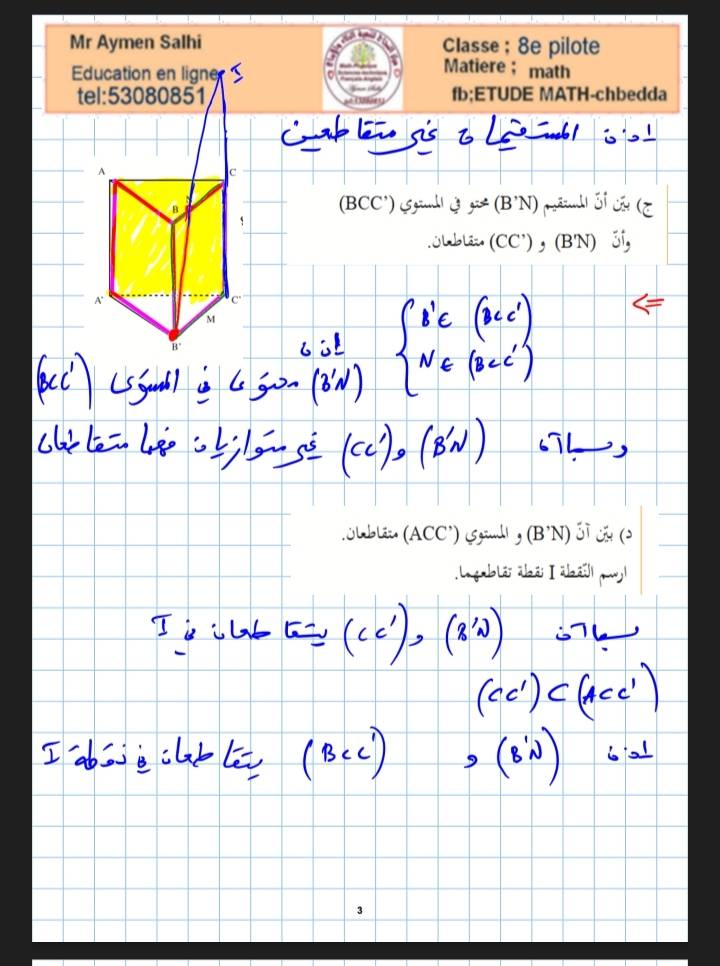 Mr Aymen Salhi
Education en ligne
tel:53080851
Classe ; 8e pilote
Matiere ; math
fb;ETUDE MATH-chbedda
إذن المستقيمان غير متقاطعين
I
A
C
B
N
A'
C'
M
B'
ج) بيّن أنّ المستقيم (B'N) محتو في المستوي (BCC')
وأنّ (B'N) و (CC') متقاطعان.
B' ∈ (BCC') <=
N ∈ (BCC')
إذن
(B'N) محتوى في المستوى (BCC')
وبما أن (B'N) و (CC') غير متوازيان فهما متقاطعان
د) بيّن أنّ (B'N) و المستوي (ACC') متقاطعان.
ارسم النّقطة I نقطة تقاطعهما.
بما أن (B'N) و (CC') يتقاطعان في I
(CC') ⊂ (ACC')
إذن (B'N) و (BCC') يتقاطعان في نقطة I
3